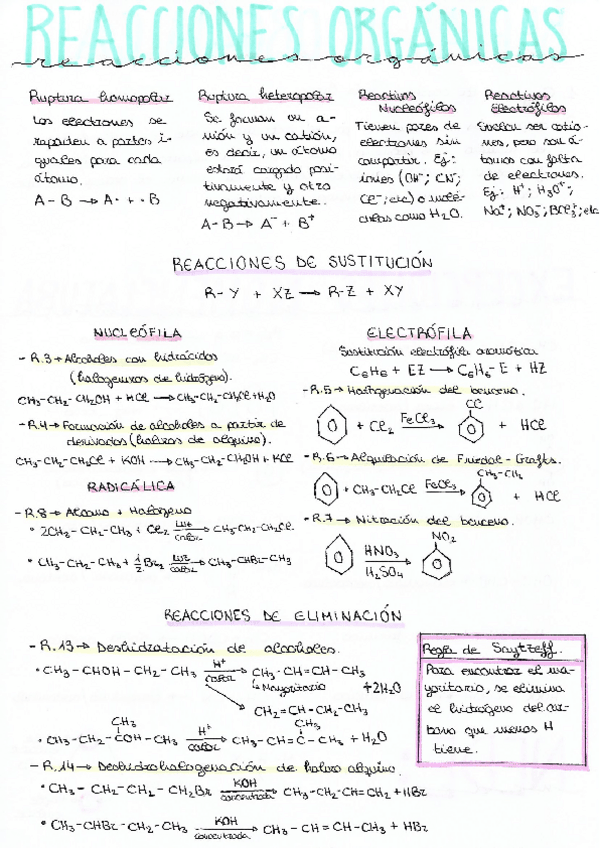 REACCIONES ORGÁNICAS
reacciones orgánicas
Ruptura homopolar
Los electrones se
reparten a partes i-
guales para cada
átomo.
A-B → A· + ·B
Ruptura heteropolar
Se forman un a-
nión y un catión,
es decir, un átomo
estará cargado posi-
tivamente y otro
negativamente.
A-B → A⁻ + B⁺
Reactivos
Nucleófilos
Tienen pares de
electrones sin
compartir. Ej:
iones (OH⁻; CN⁻;
Cl⁻; etc) o molé-
culas como H₂O.
Reactivos
Electrófilos
Suelen ser catio-
nes, pero son á-
tomos con falta
de electrones.
Ej: H⁺; H₃O⁺;
Na⁺; NO₃⁻; BCl₃; etc
REACCIONES DE SUSTITUCIÓN
R-Y + XZ → R-Z + XY
NUCLEÓFILA
- R.3 → Alcoholes con hidrácidos
(halogenuros de hidrógeno).
CH₃-CH₂-CH₂OH + HCl → CH₃-CH₂-CH₂Cl + H₂O
- R.4 → Formación de alcoholes a partir de
derivados (haluros de alquino).
CH₃-CH₂-CH₂Cl + KOH → CH₃-CH₂-CH₂OH + KCl
RADICÁLICA
- R.8 → Alcano + Halógeno
• 2CH₃-CH₂-CH₃ + Cl₂ luz calor → CH₃-CH₂-CH₂Cl.
• CH₃-CH₂-CH₃ + 1/2 Br₂ luz calor → CH₃-CHBr-CH₃
ELECTRÓFILA
Sustitución electrófila aromática
C₆H₆ + EZ → C₆H₅-E + HZ
- R.5 → Halogenación del benceno.
+ Cl₂ FeCl₃ → Cl + HCl
- R.6 → Alquilación de Friedal-Crafts.
+ CH₃-CH₂Cl FeCl₃ → CH₂-CH₃ + HCl
- R.7 → Nitración del benceno.
HNO₃ H₂SO₄ → NO₂
REACCIONES DE ELIMINACIÓN
- R.13 → Deshidratación de alcoholes.
• CH₃-CHOH-CH₂-CH₃ H⁺ calor → CH₃-CH=CH-CH₃
↳ Mayoritario +2H₂O
CH₂=CH-CH₂-CH₃
CH₃ CH₃
• CH₃-CH₂-COH-CH₃ H⁺ calor → CH₃-CH=C-CH₃ + H₂O
- R.14 → Deshidrohalogenación de haluro alquino.
• CH₃-CH₂-CH₂-CH₂Br KOH concentrada → CH₃-CH₂-CH=CH₂ + HBr
• CH₃-CHBr-CH₂-CH₃ KOH concentrada → CH₃-CH=CH-CH₃ + HBr
Regla de Saytzeff.
Para encontrar el ma-
yoritario, se elimina
el hidrógeno del car-
bono que menos H
tiene.